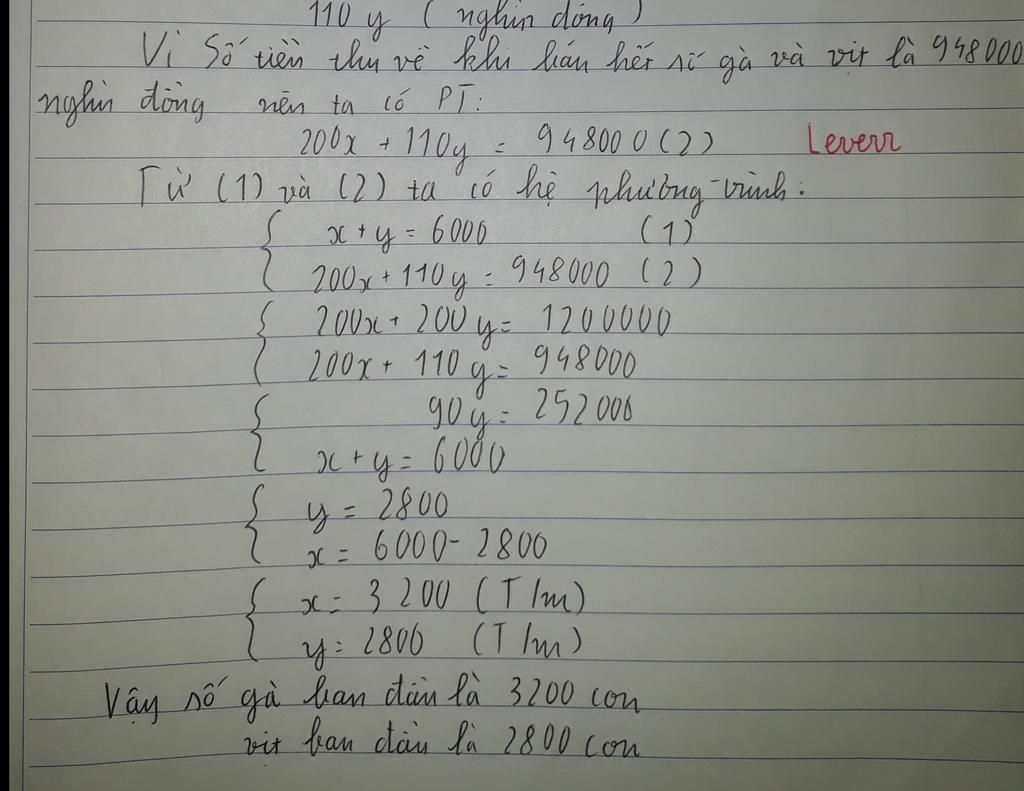 110 y ( nghìn đồng )
Vì Số tiền thu về khi bán hết số gà và vịt là 948000
nghìn đồng nên ta có PT:
200x + 110y = 948000 (2) Leverr
Từ (1) và (2) ta có hệ phương trình:
x + y = 6000 (1)
200x + 110y = 948000 (2)
200x + 200y = 1200000
200x + 110y = 948000
90y = 252000
x + y = 6000
y = 2800
x = 6000 - 2800
x = 3200 (T/m)
y = 2800 (T/m)
Vậy số gà ban đầu là 3200 con
vịt ban đầu là 2800 con